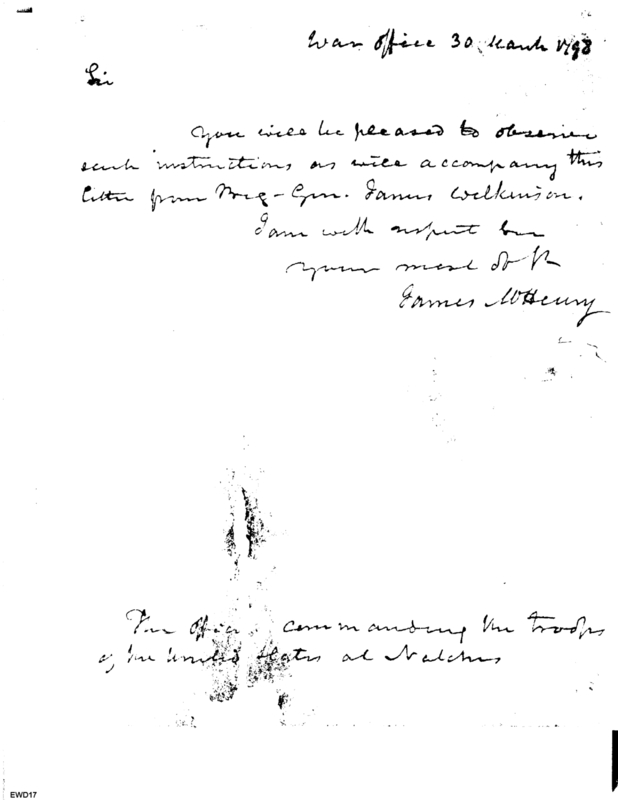 War office 30 March 1798
Sir
You will be pleased to observe
such instructions as will accompany this
letter from Brig-Gen. James Wilkinson.
I am with respect
your most ob St
James McHenry
The officer commanding the troops
of the United States at Natches
EWD17